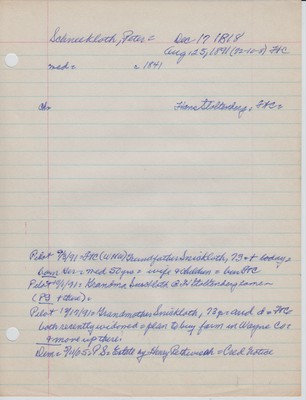 Schneckloth, Peter = Dec 17 1818
Aug. 25, 1891 (72-10-8) FtC
med = = 1841
ch = Hans Stoltenberg, FtC =
Pilot 9/3/91 = FtC (WHW) Grandfather Snickloth, 73 + today =
Ger = med 50 yrs = wife & children = bur FtC
Pilot 9/1/91 = Grandma Snickloth & H Stoltenberg same =
(PS & them) =
Pilot 12/17/91 = Grandmother Snickloth, 73 yrs and d = FtC
both recently widowed = plan to buy farm in Wayne Co =
& move up there.
Dem = 9/14/05, PS = Estate by Henry = Cred. Notice